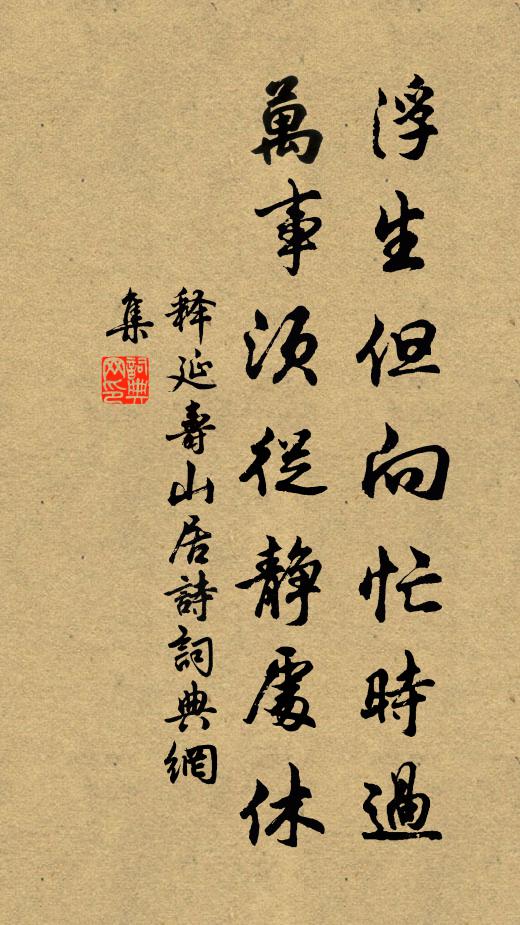 浮生但向忙時過
萬事須從静處休
释延壽山居詩詞典網
集
詞典
网印